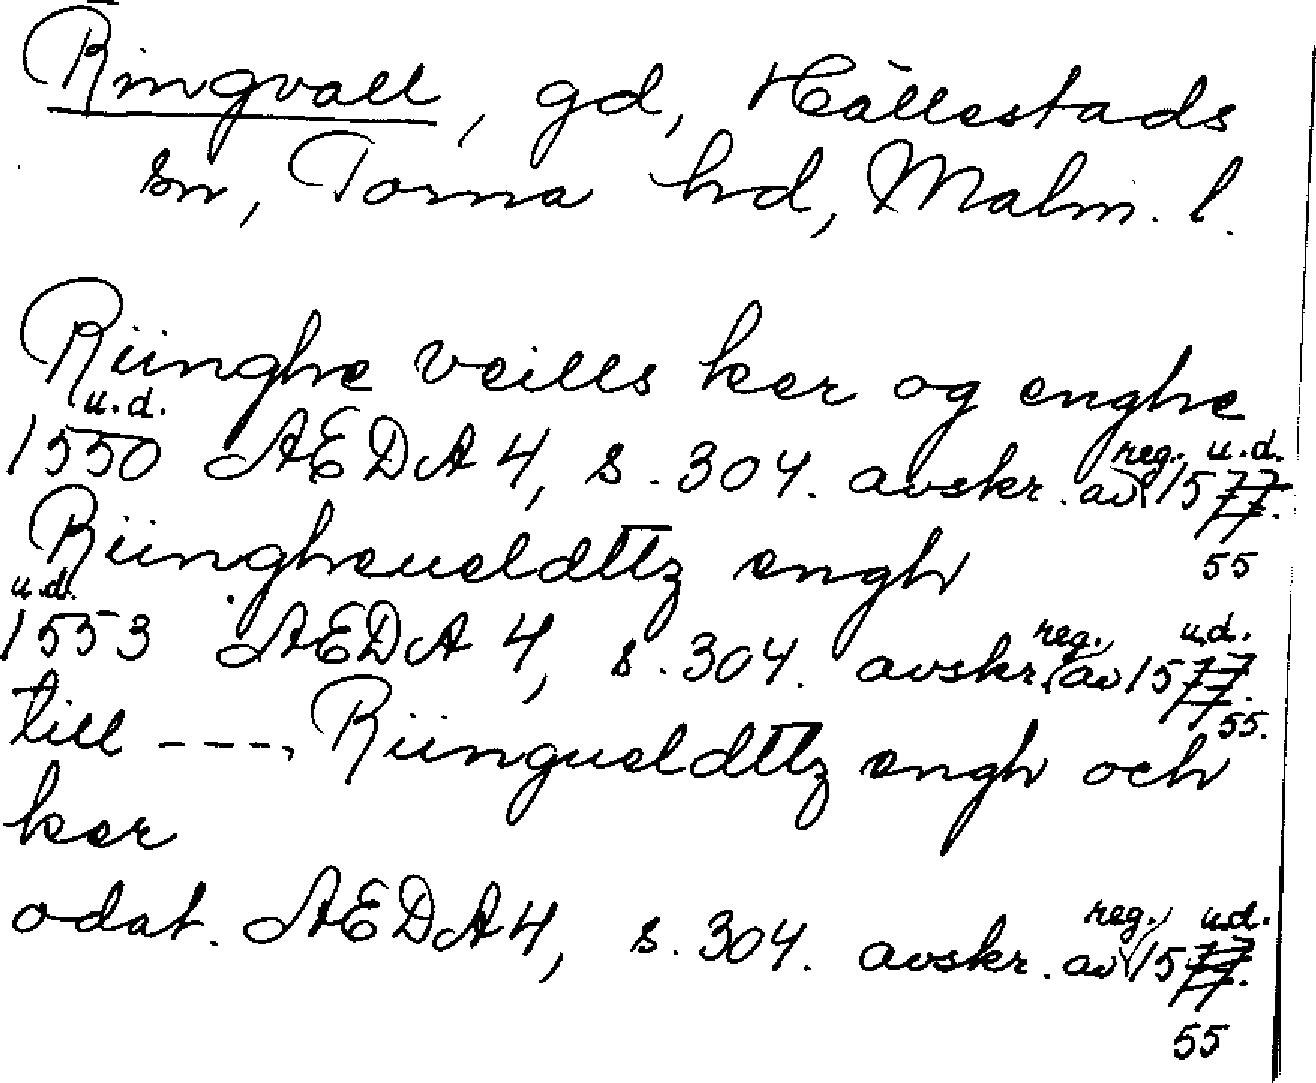 Ringvall, gd, Hällestads
sn, Torna hd, Malm. l.
Riinghe veills ker og enghe
u.d.
1550 AEDA 4, s. 304. avskr. av reg. u.d. 1577.
55
Riingheueldttz engh
u.d.
1553 AEDA 4, s. 304. avskr. av reg. u.d. 1577.
55.
till ----. Riingueldttz engh och
ker
odat. AEDA 4, s. 304. avskr. av reg. u.d. 1577.
55